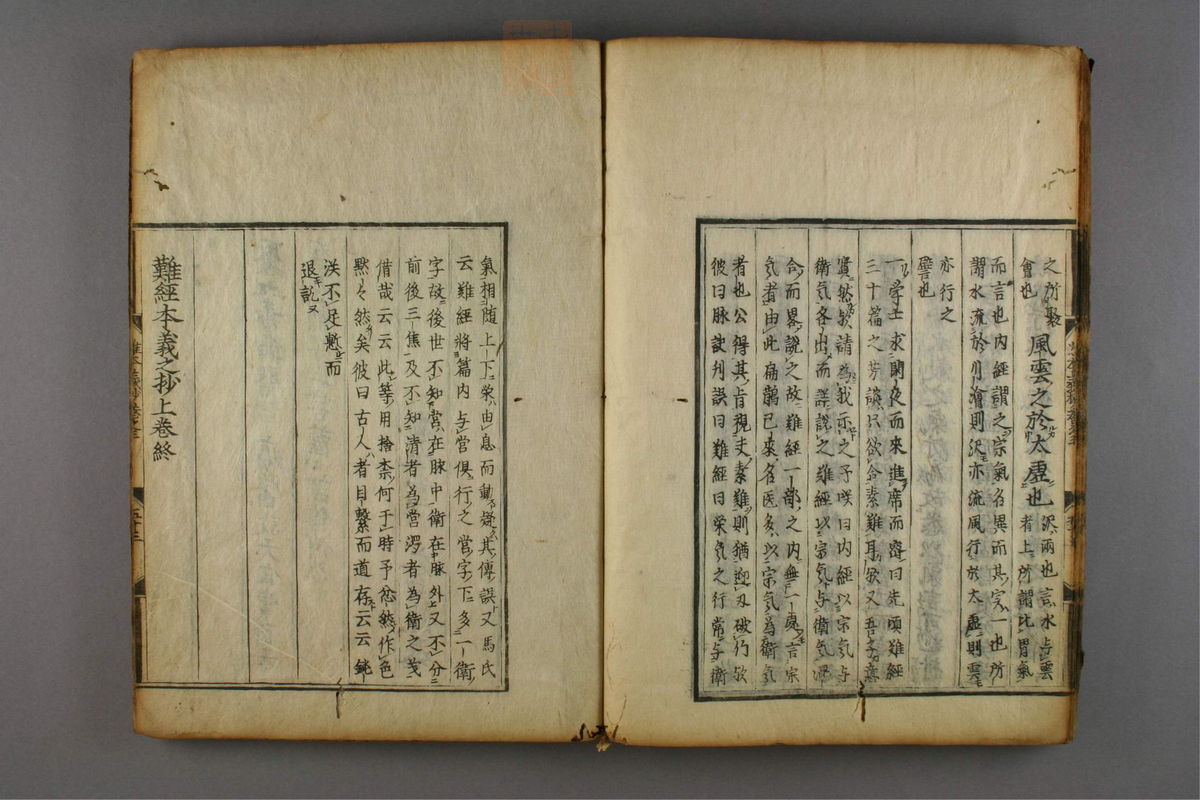 之所聚 風雲之於太虛也 沢雨也言水与雲
會也 者上所謂比胃氣
而言也内經謂之宗氣名異而其実一也所
謂水流於川澮則沢亦流風行於太虛則雲
亦行之
譬也
一学士求関夜而來進席而啓曰先頃難經
三十篇之芳談只欲合素難耳歟又吾子意
實然歟請為我示之予咲曰内經以宗気与
衛気各出而詳説之難經以宗気与衛気混
合而畧説之故難經一部之内無一處言宗
気者由此扁鵲已來名医多以宗気為衛気
者也公得其肯視丈素難則猶迎刃破竹歟
彼曰脉訣刋誤曰難經曰栄気之行常与衛
氣相随上下栄由息而動疑其傳誤又馬氏
云難經將篇内与営倶行之営字下多一衛
字故後世不知営在脉中衛在脉外又不分
前後三焦及不知清者為営濁者為衛之義
借哉云云此等用捨柰何于時予忿然作色
黙々然矣彼曰古人者目繋而道存云云鈍
漢不足慙而
退訖又
難經本義之抄上巻終